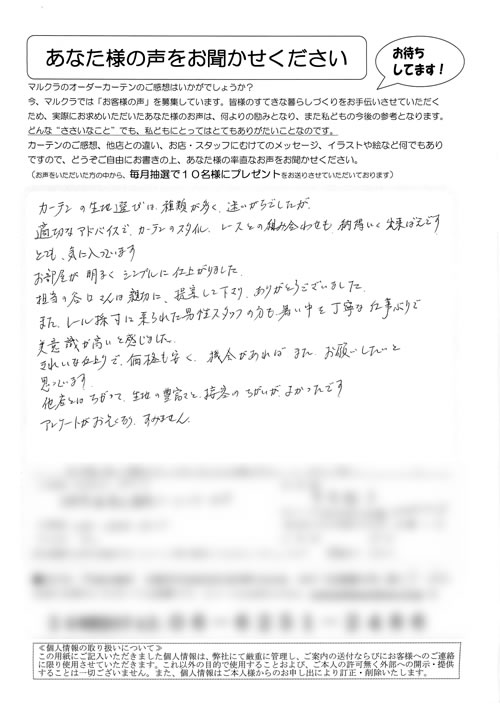 あなた様の声をお聞かせください
お待ち
してます！
マルクラのオーダーカーテンのご感想はいかがでしょうか？
今、マルクラでは「お客様の声」を募集しています。皆様のすてきな暮らしづくりをお手伝いさせていただく
ため、実際にお求めいただいたあなた様のお声は、何よりの励みとなり、また私どもの今後の参考となります。
どんな“ささいなこと”でも、私どもにとってはとてもありがたいことなのです。
カーテンのご感想、他店との違い、お店・スタッフにむけてのメッセージ、イラストや絵など何でもあり
ですので、どうぞご自由にお書きの上、あなた様の率直なお声をお聞かせください。
（お声をいただいた方の中から、毎月抽選で１０名様にプレゼントをお送りさせていただいております）
カーテンの生地選びは、種類が多く、迷いがちでしたが、
適切なアドバイスで、カーテンのスタイル、レースとの組み合わせも
とても、気に入っています
お部屋が 明るく シンプルに仕上がりました。
担当の谷口さんは親切に、提案して下さり、ありがとうございました。
また、レール採寸に来られた男性スタッフの方も、暑い中を丁寧な仕事ぶりで
意識が高いと感じました。
きれいな仕上りで、価格も安く、機会があればまた お願いしたいと
思っています。
他店とはちがって、生地の豊富さと、接客のちがいがよかったです
アンケートがおそくなり、すみません。
≪個人情報の取り扱いについて≫
この用紙にご記入いただきました個人情報は、弊社にて厳重に管理し、ご案内の送付ならびにお客様へのご連絡
に限り使用させていただきます。これ以外の目的で使用することおよび、ご本人の許可無く外部への開示・提供
することは一切ございません。また、個人情報はご本人様からのお申し出により訂正・削除いたします。